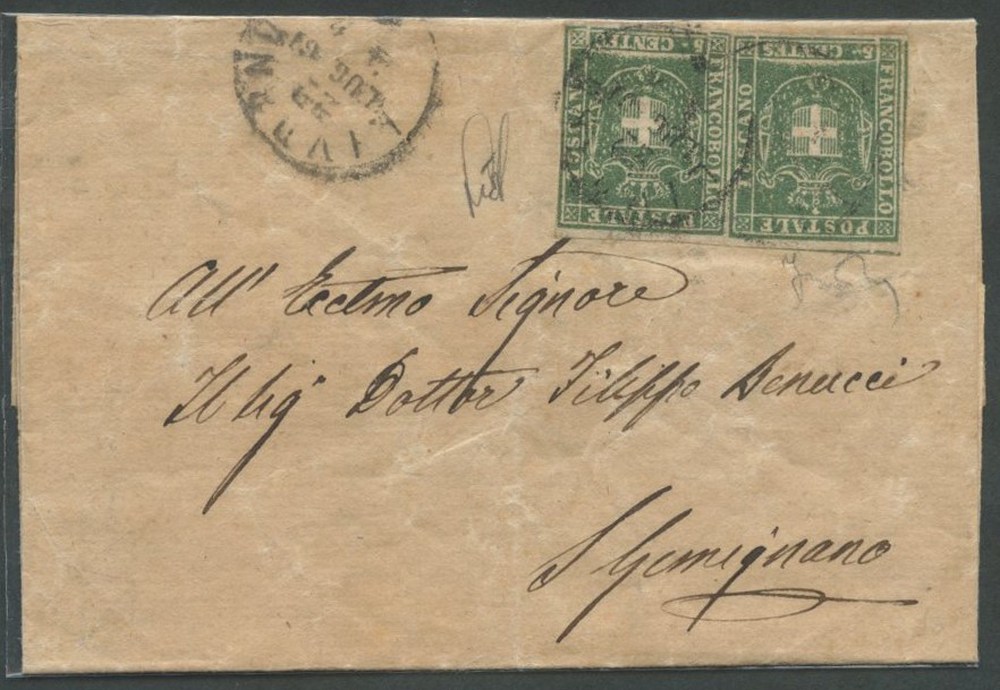 LIVORNO
CENT
FRANCOBOLLO
POSTALE
CENT
FRANCOBOLLO
POSTALE
All' Ecclmo Signore
Il Sigr Dottor Filippo Benucci
S Gemignano